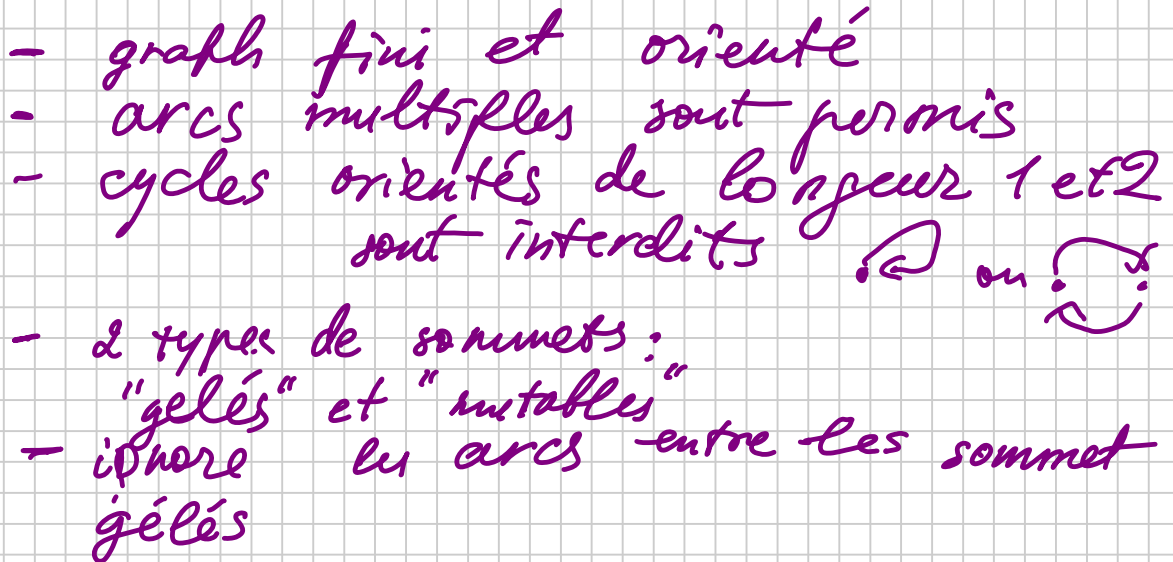 - graph fini et orienté
- arcs multiples sont permis
- cycles orientés de longeur 1 et 2
sont interdits ou
- 2 types de sommets :
"gelés" et "mutables"
- ignore les arcs entre les sommet
gélés